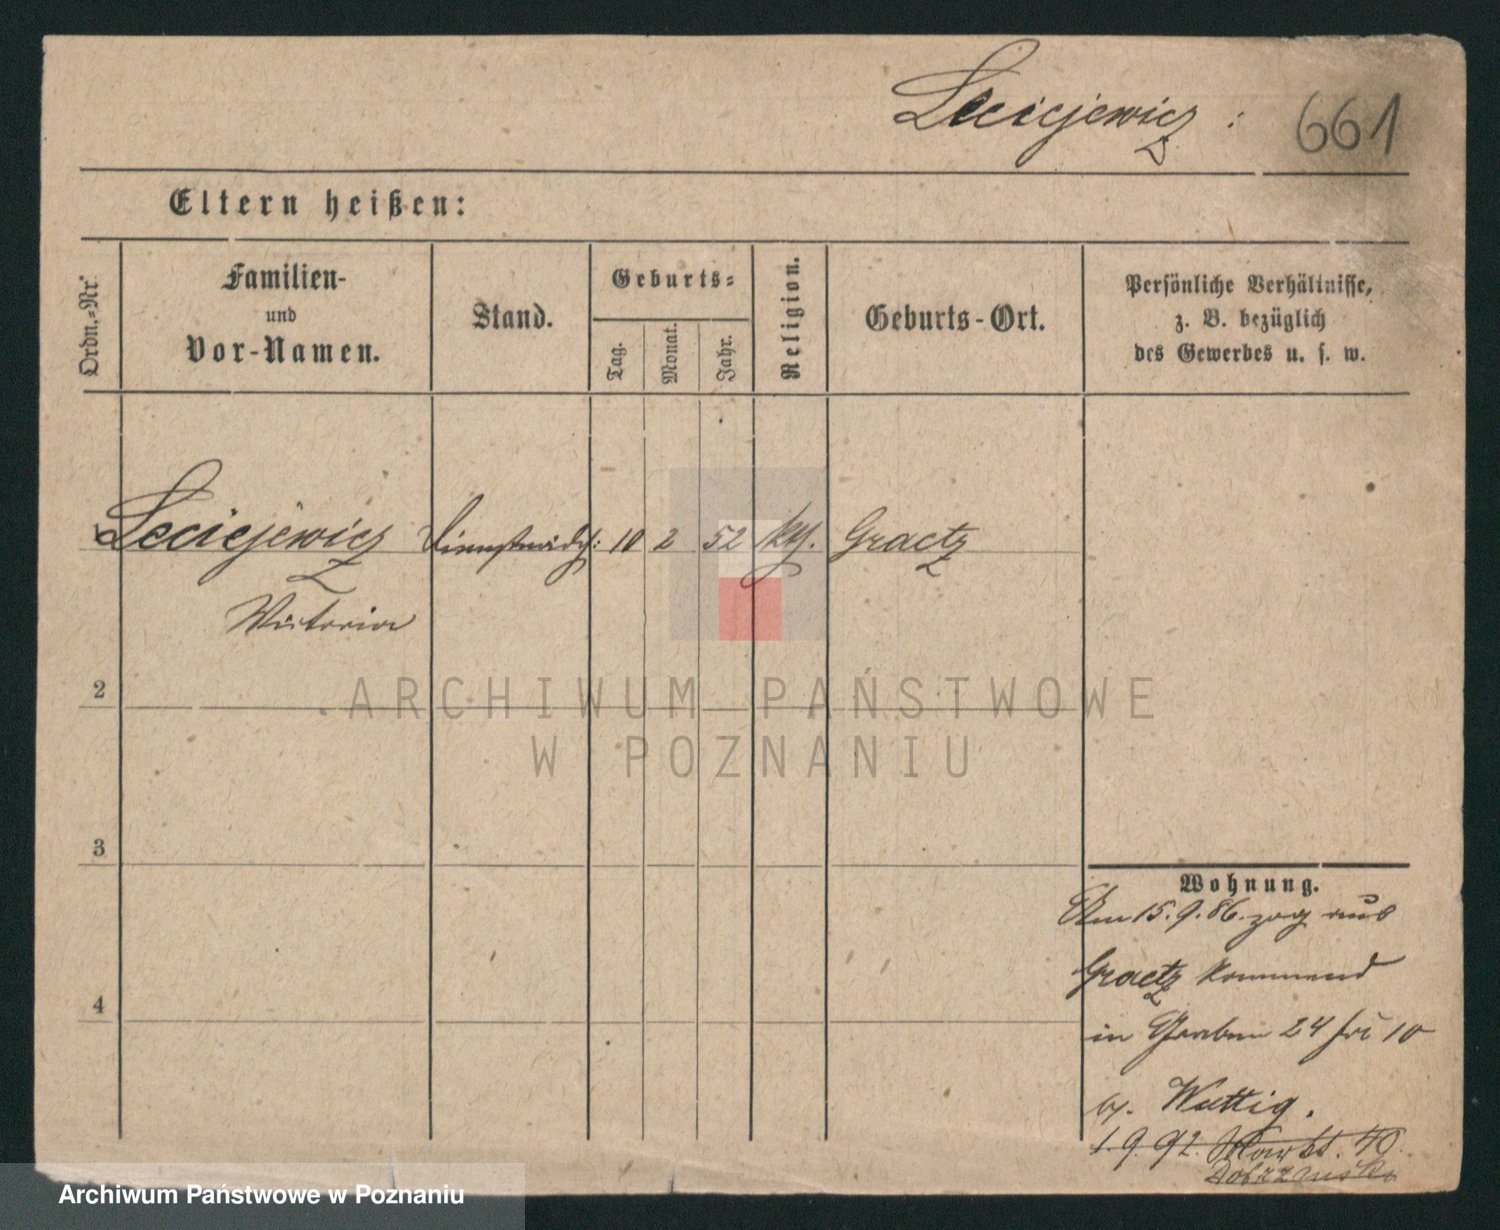 Leciejewicz : 661
Eltern heißen:
Ordn.-Nr.
Familien-
und
Vor-Namen.
Stand.
Geburts-
Tag.
Monat.
Jahr.
Religion.
Geburts-Ort.
Persönliche Verhältnisse,
z. B. bezüglich
des Gewerbes u. s. w.
Leciejewicz Dienstmdch: 10 2 52 Graetz
Victoria
2
3
4
Wohnung.
Am 15.9.86. zog aus
Graetz kommend
in Graben 24 10
Wuttig.
1.9.92. Markt. 40.
Dobrzański
ARCHIWUM PAŃSTWOWE
W POZNANIU
Archiwum Państwowe w Poznaniu